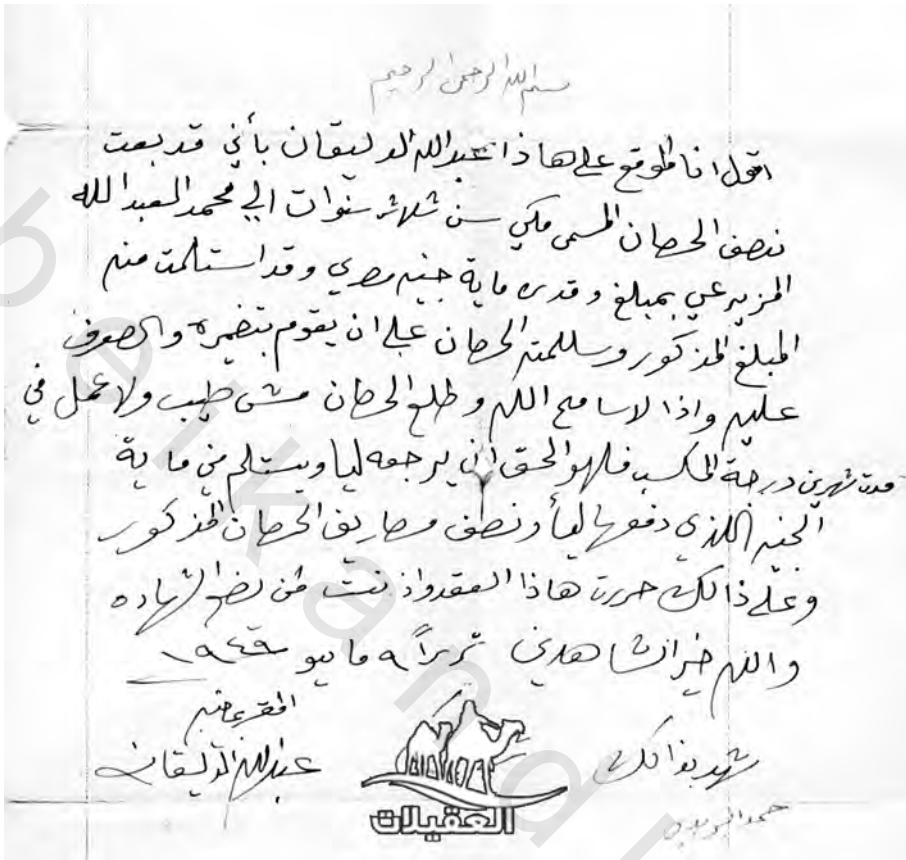 بسم الله الرحمن الرحيم
اقول انا الموقع على هاذا عبدالله الدليقان بأني قد بعت
نصف الحصان المسمى مكي سن ثلاث سنوات الي محمد العبد الله
المزيرعي بمبلغ وقدره ماية جنيه مصري وقد استلمت منه
المبلغ المذكور وسللمته الحصان على ان يقوم بتضميره والصرف
عليه واذا لاسامح الله وطلع الحصان مش طيب ولا عمل في
مدت شهرين درجة المكسب فلهو الحق ان يرجعه ليا ويستلم مني ماية
الجنيه اللذي دفعها ليا ونصف مصاريف الحصان المذكور
وعلى ذالك حررت هاذا العقد واذ الشهاده
والله خير الشاهدين تحريراً ٩ مايو ١٩٤٩
المقر بما فيه
عبدالله الدليقان
شهد بذالك
حمد
العقيلات
beikandl